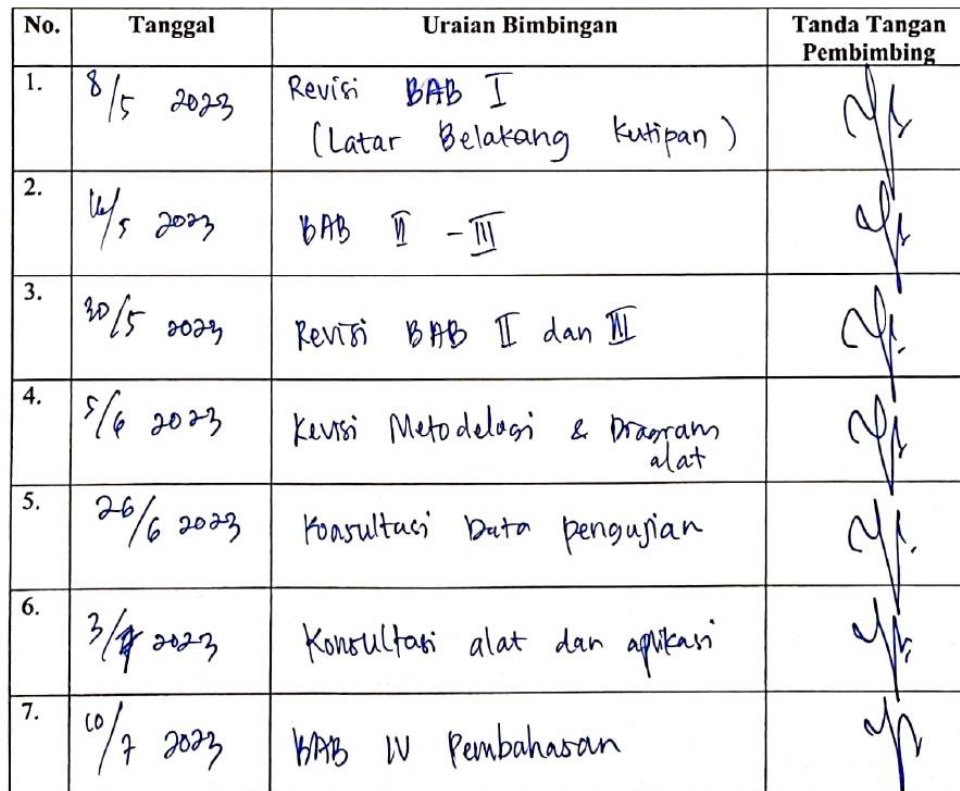 No. Tanggal Uraian Bimbingan Tanda Tangan
Pembimbing
1. 8/5 2023 Revisi BAB I
(Latar Belakang Kutipan)
2. 16/5 2023 BAB II - III
3. 30/5 2023 Revisi BAB II dan III
4. 5/6 2023 Revisi Metodelogi & Diagram
alat
5. 26/6 2023 Konsultasi Data pengujian
6. 3/7 2023 Konsultasi alat dan aplikasi
7. 10/7 2023 BAB IV Pembahasan